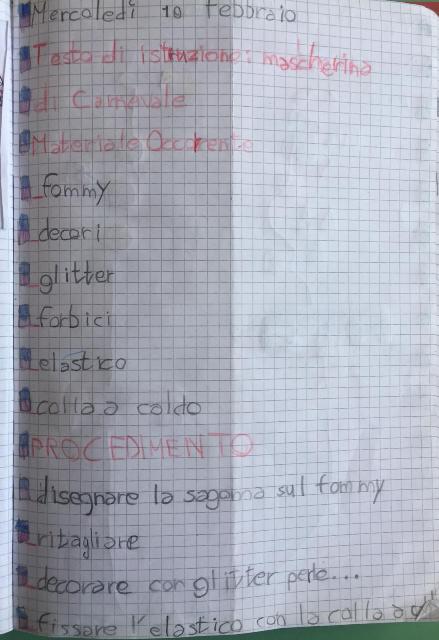 Mercoledì 10 febbraio
Testo di istruzione: mascherina
di Carnevale
Materiale Occorrente
_fommy
_decori
_glitter
_forbici
_elastico
_colla a caldo
PROCEDIMENTO
_disegnare la sagoma sul fommy
_ritagliare
_decorare con glitter perle...
_fissare l'elastico con la colla a